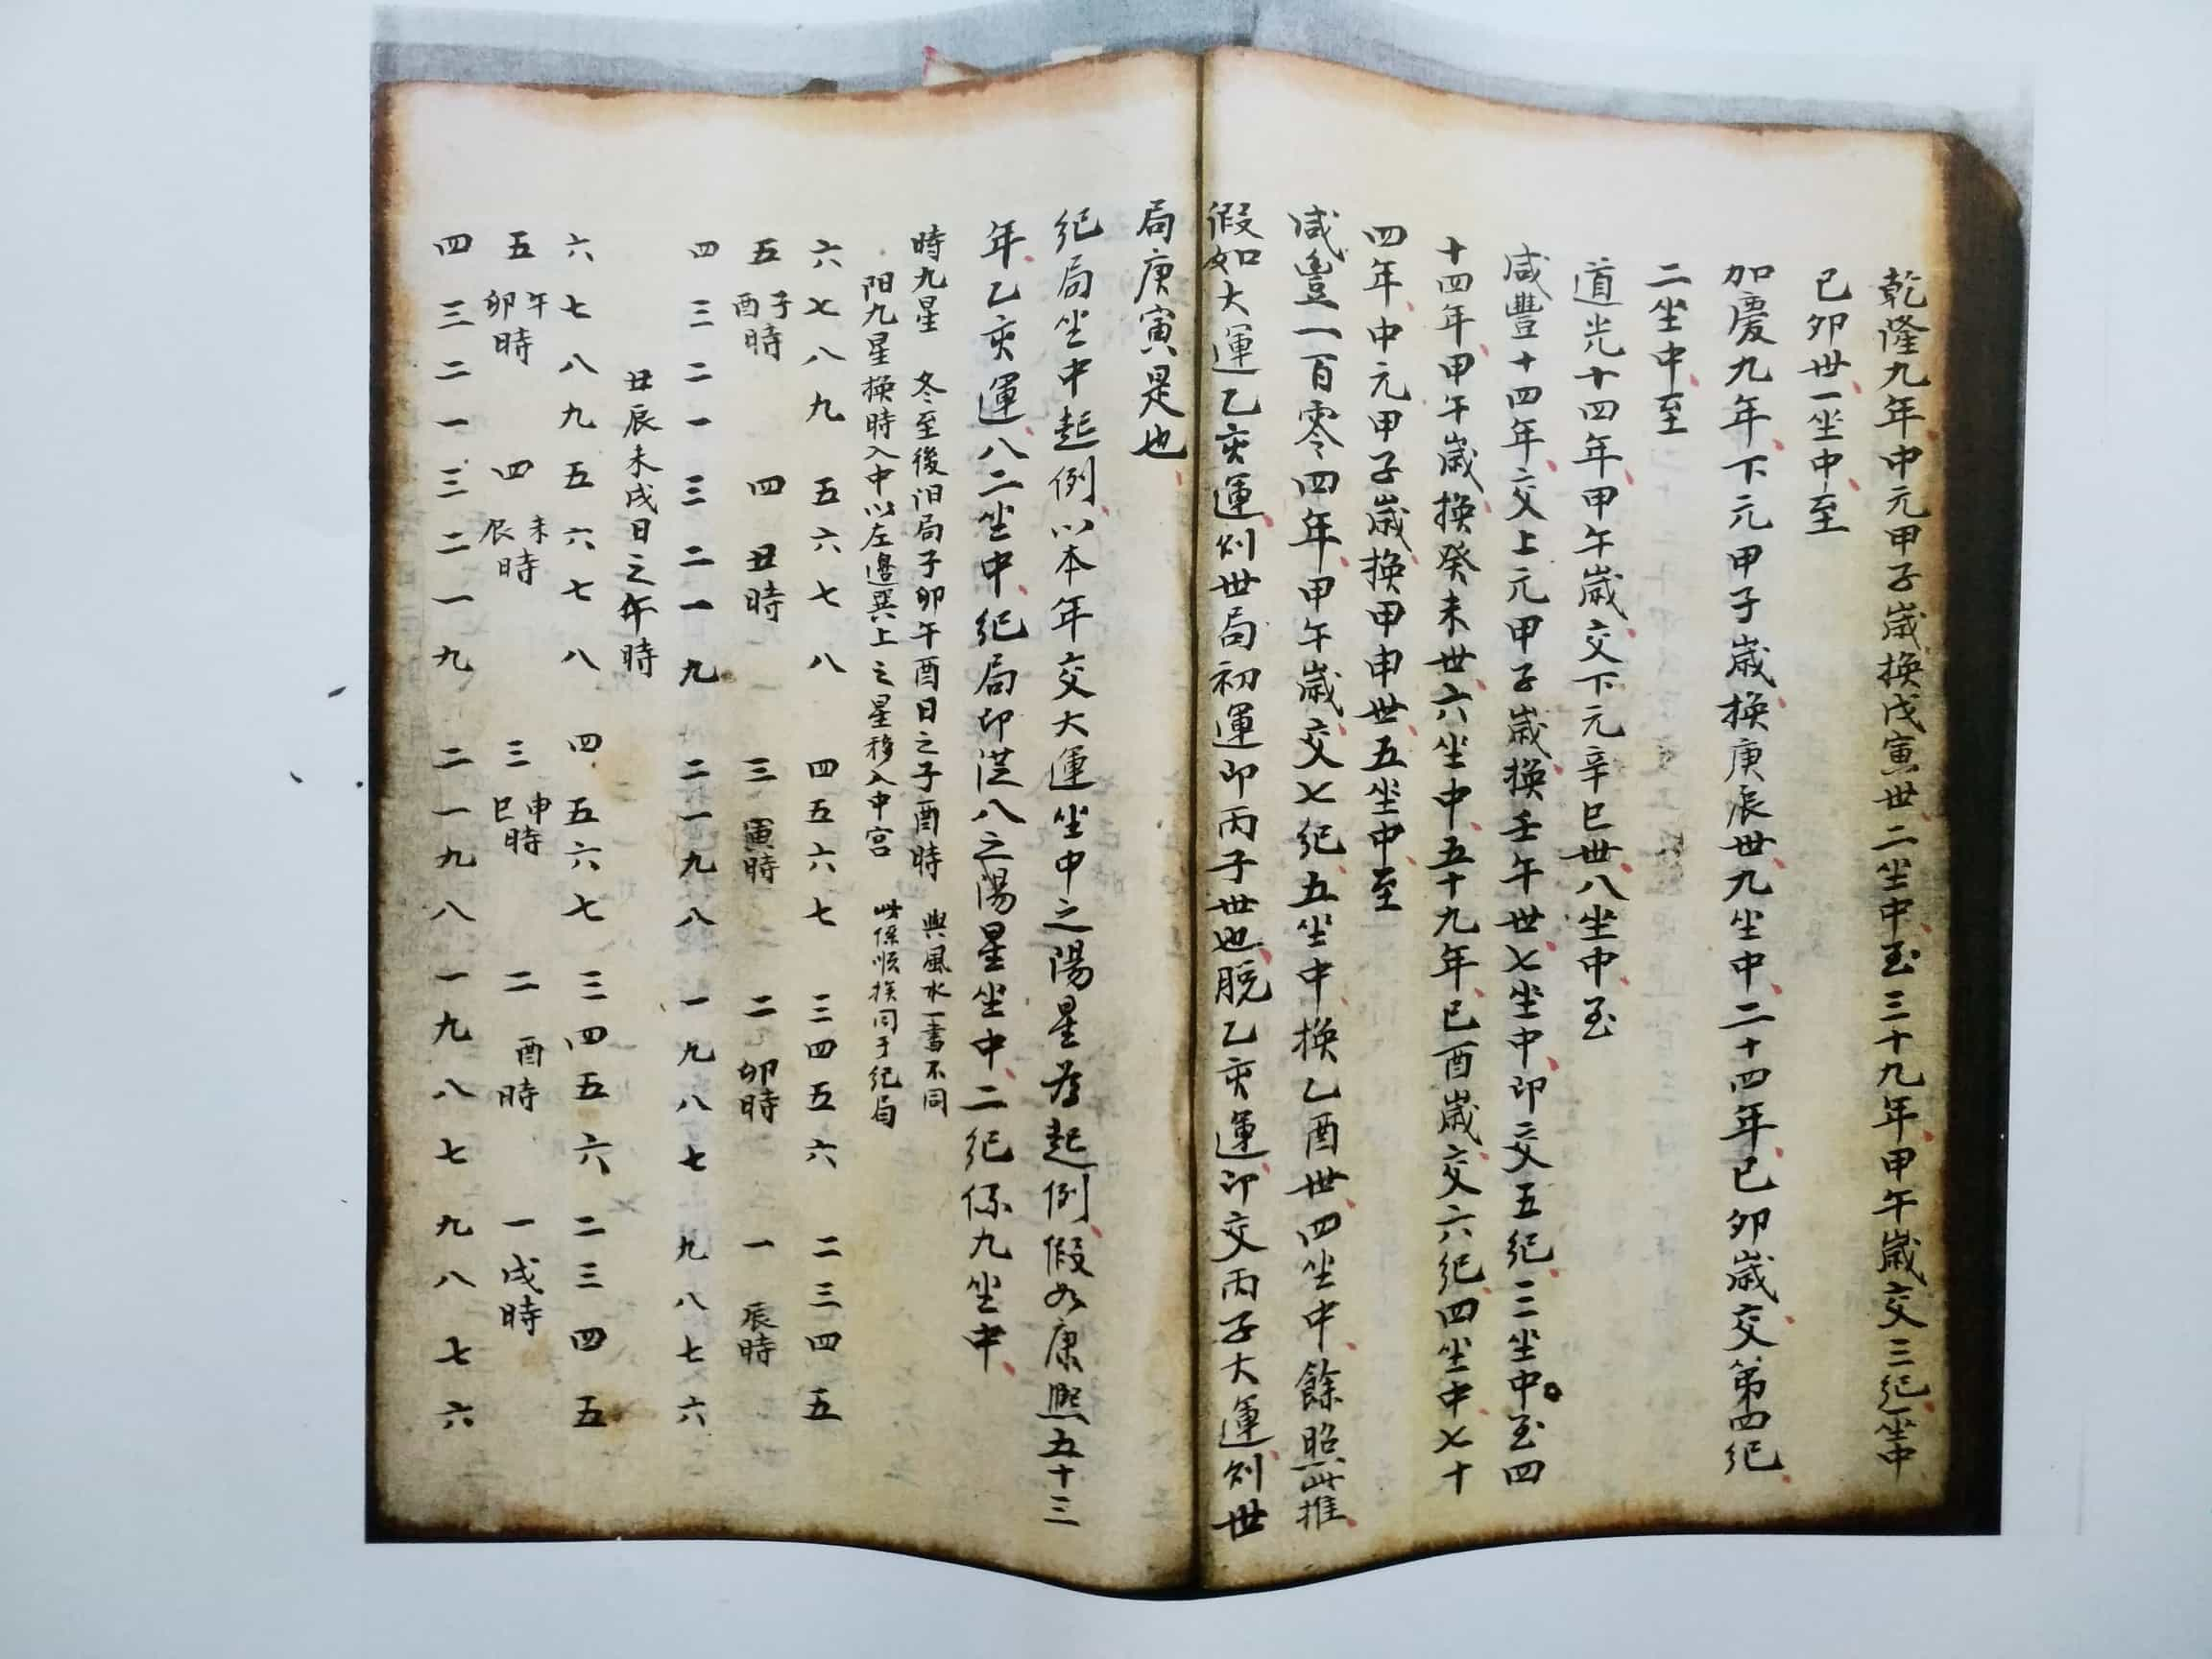 乾隆九年中元甲子歲換戊寅世二坐中至三十九年甲午歲交三紀坐中
已夘世一坐中至
加慶九年下元甲子歲換庚辰世九坐中二十四年已夘歲交第四紀
二坐中至
道光十四年甲午歲交下元辛巳世八坐中至
咸豐十四年交上元甲子歲換壬午世七坐中即交五紀三坐中至四
十四年甲午歲換癸未世六坐中五十九年已酉歲交六紀四坐中七十
四年中元甲子歲換甲申世五坐中至
咸豐一百零四年甲午歲交七紀五坐中換乙酉世四坐中餘照此推
假如大運乙亥運刬世局初運即丙子世也脫乙亥運即交丙子大運刬世
局庚寅是也
紀局坐中起例以本年交大運坐中之陽星為起例假如康熙五十三
年乙亥運八二坐中紀局即從八之陽星坐中二紀係九坐中
時九星 冬至後汨局子夘午酉日之子酉時 與風水一書不同
阳九星換時入中以左邉巽上之星移入中宮 此係順挨同于紀局
六七八九 五六七八 四五六七 三四五六 二三四五
五 子酉時 四 丑時 三 寅時 二 夘時 一 辰時
四三二一 三二一九 二一九八 一九八七 九八七六
丑辰未戌日之午時
六七八九 五六七八 四五六七 三四五六 二三四五
五 午夘時 四 未辰時 三 申巳時 二 酉時 一 戌時
四三二一 三二一九 二一九八 一九八七 九八七六